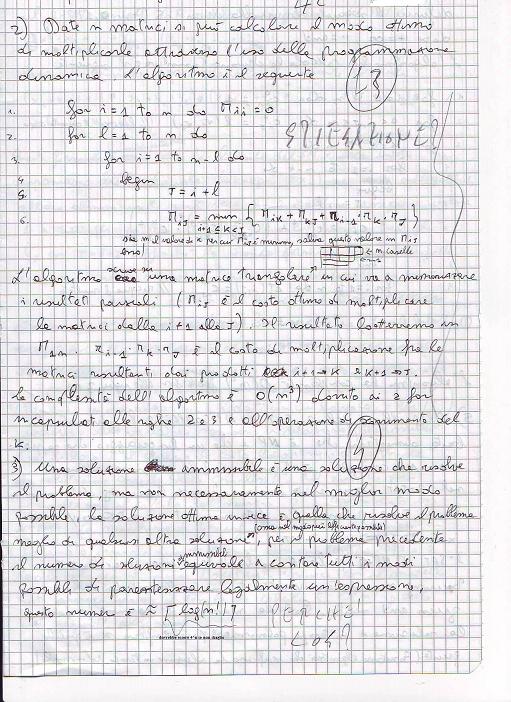 2) Date n matrici si può calcolare il modo ottimo
di moltiplicarle attraverso l'uso della programmazione
dinamica. L'algoritmo è il seguente
13
1. for i=1 to n do Mii=0
2. for l=1 to n do
SPIEGAZIONE?
3. for i=1 to n-l do
4. begin
5. J=i+l
6. MiJ = min i+1≤K<J { MiK + MKJ + ni-1·nK·nJ }
sia m il valore di k per cui MiJ è minimo, salva questo valore in MiJ
end
L'algoritmo scrive su una matrice "triangolare" in cui va a memorizzare
i risultati parziali (MiJ è il costo ottimo di moltiplicare
le matrici dalla i+1 alla J). Il risultato lo otterremo in
M1n. ni-1·nK·nJ è il costo di moltiplicazione fra le
matrici risultanti dai prodotti i+1→K e K+1→J.
la complessità dell'algoritmo è O(n³) dovuto ai 2 for
incapsulati alle righe 2 e 3 e all'operazione di del
K.
3) Una soluzione ammissibile è una soluzione che risolve
il problema, ma non necessariamente nel miglior modo
possibile, la soluzione ottima invece è quella che risolve il problema
meglio di qualsiasi altra soluzione, per il problema precedente
il numero di soluzioni ammissibili equivale a contare tutti i modi
possibili di parentesizzare legalmente un'espressione,
questo numero è ≈ [log(n!)]
PERCHE'
COSI?